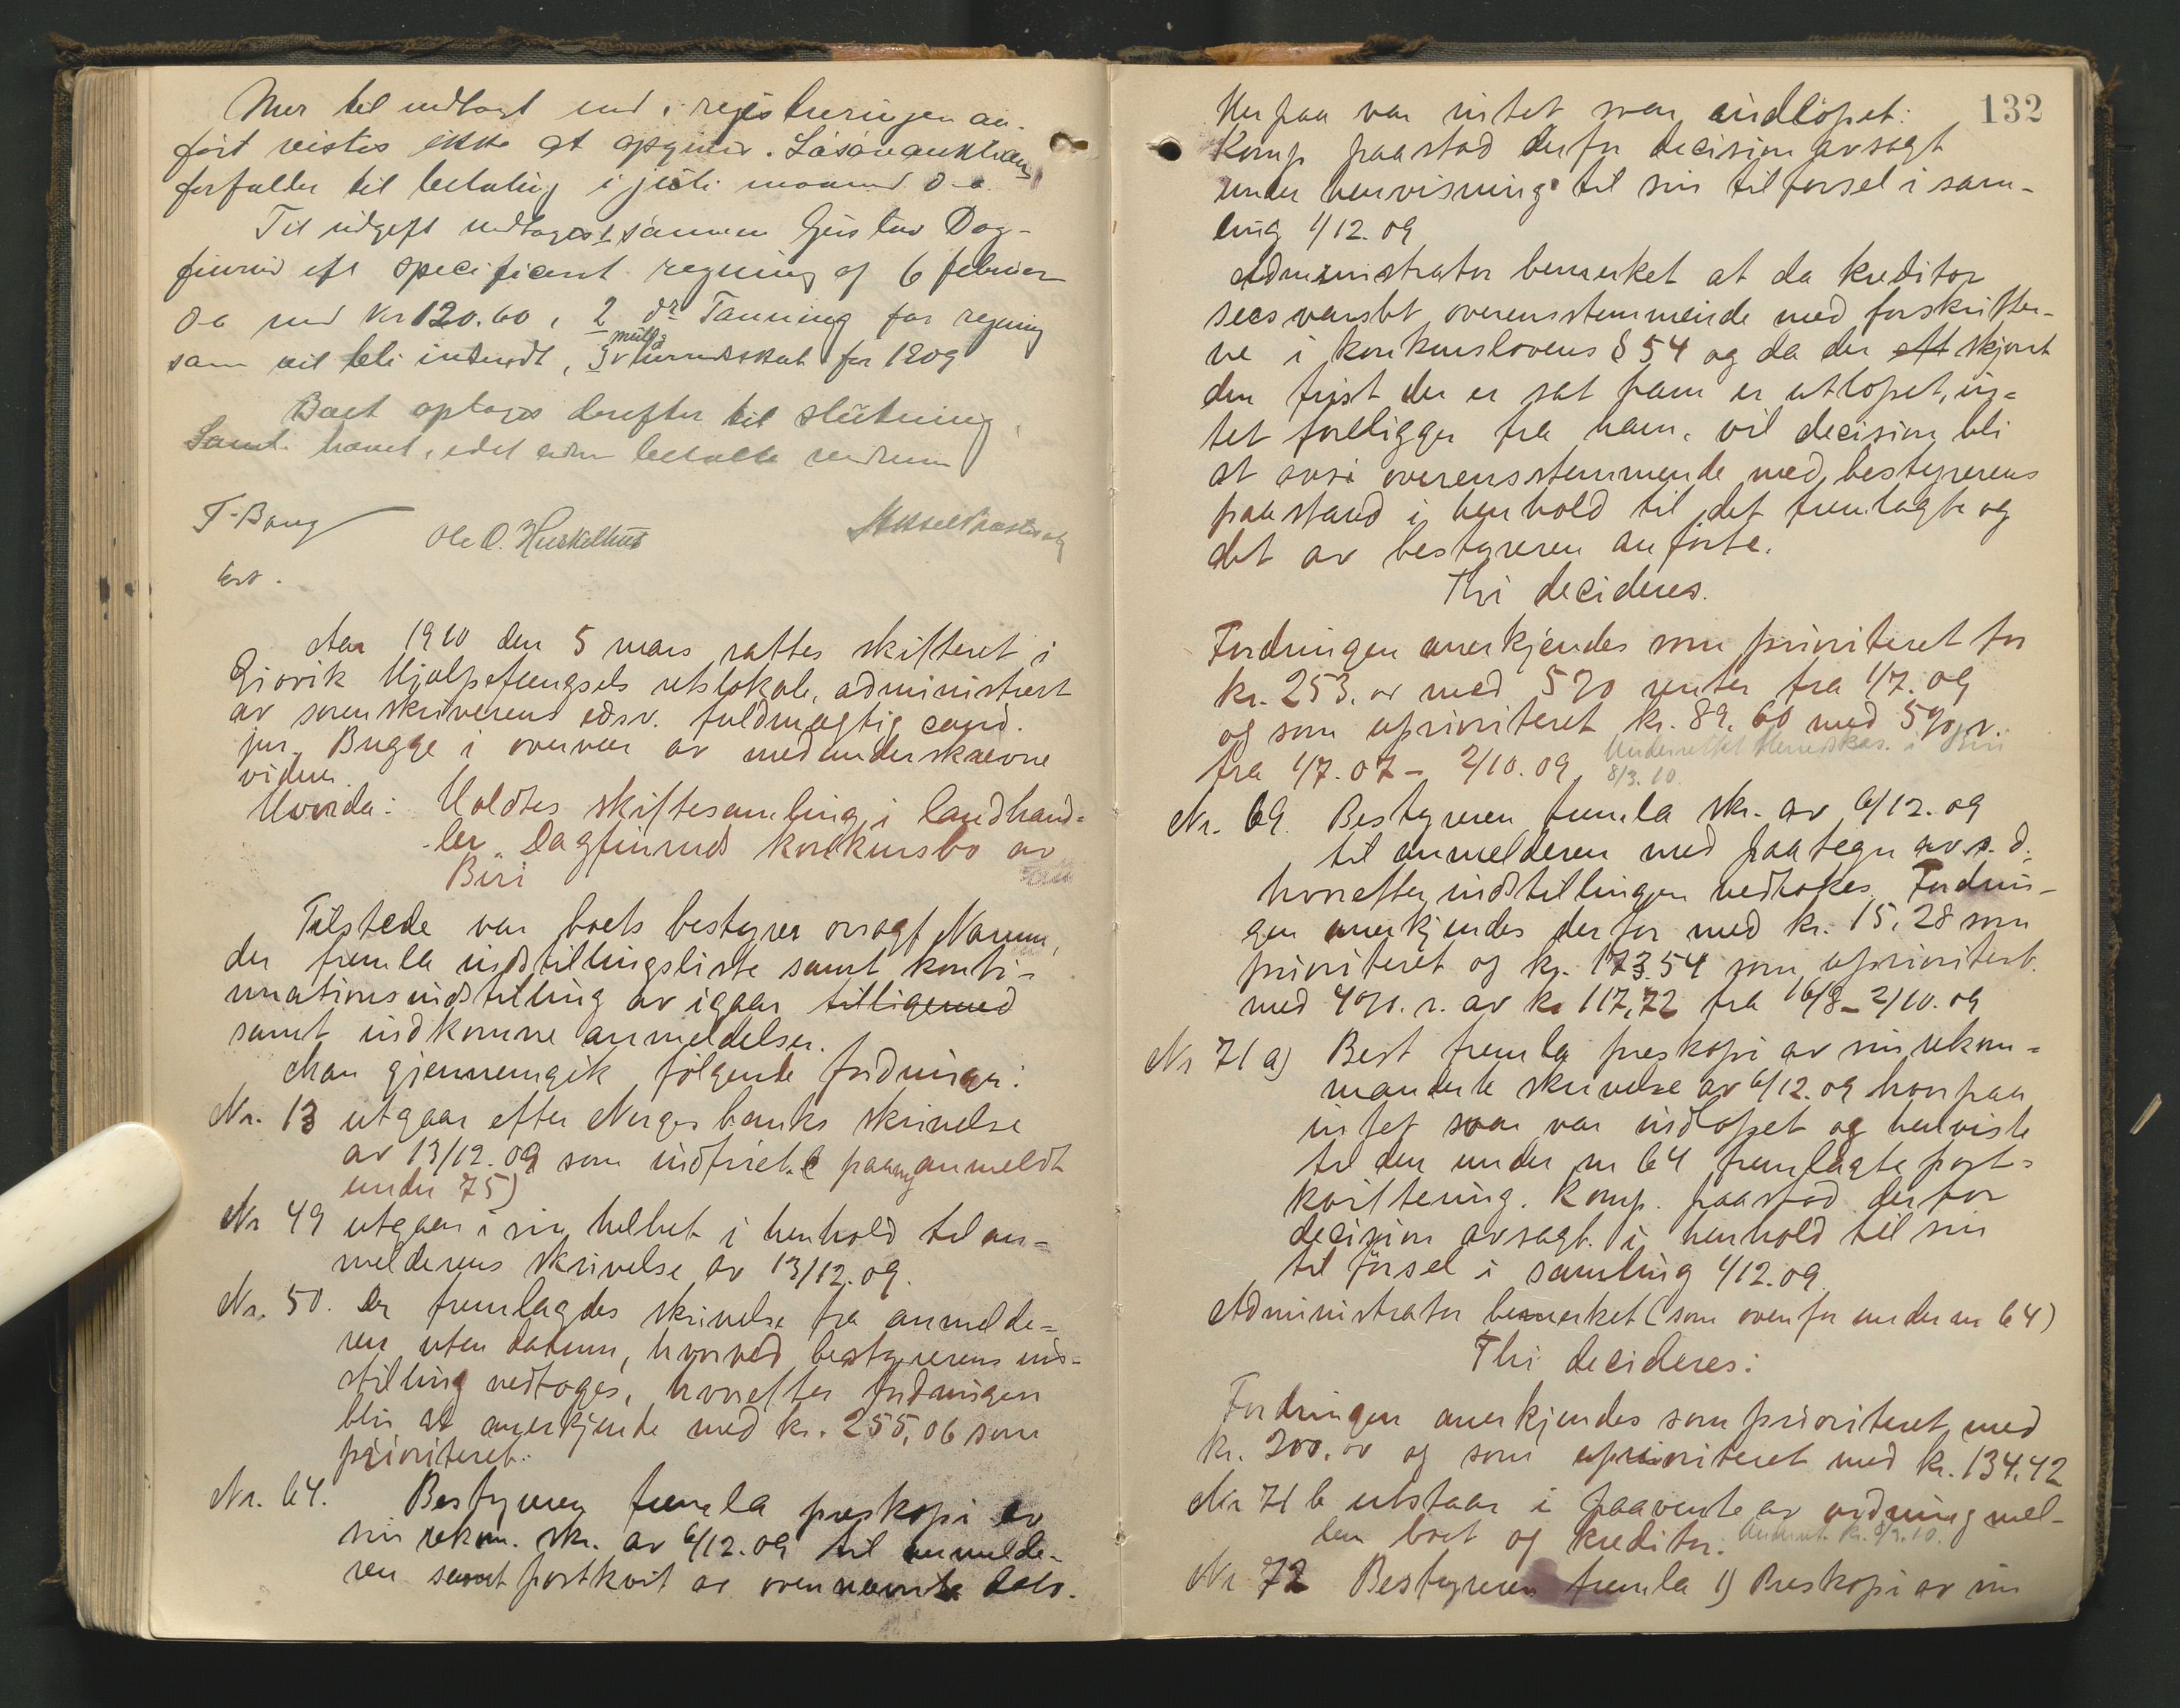 Mer til indtægt end i registreringen an-
ført vistes ikke at opgives. Løsøreauktionen
forfalder til betaling i juli maaned d-a
Til udgift indtoges 1 sønnen Gustav Dag-
finrud eft specificeret regning af 6 februar
d-a med kr 120.60, 2 dr Tanning for regning
som vil bli indsendt, 3 for 1909
Boet optages derefter til slutning.
Saml. hævet, idet
T. Bang
Ole O. Huskelhus
Aar 1910 den 5 mars sattes skifteret i
Gjøvik Hjælpefængsels retslokale, administrert
av sorenskriverens edsv. fuldmægtig cand.
jur. Bugge i overvær av medunderskrevne
vidner.
Hvorda: Holdtes skiftesamling i landhand=
ler Dagfinruds konkursbo av
Biri
Tilstede var boets bestyrer orsagf Narum,
der fremla indstillingsliste samt konti=
nuationsindstilling av igaar tilligemed
samt indkomne anmeldelser.
Man gjennemgik følgende fordringer:
Nr. 13 utgaar efter Norges banks skrivelse
av 13/12.09 som indfriet. (paany anmeldt
under 75)
Nr 49 utgaar i sin helhet i henhold til an=
melderens skrivelse av 13/12.09.
Nr. 50. Der fremlagdes skrivelse fra anmelde=
ren uten datum, hvorved bestyrerens ind-
stilling vedtoges, hvorefter fordringen
blir at anerkjende med kr. 255,06 som
prioriteret.
Nr. 64. Bestyreren fremla preskopi av
sin rekom. skr. av 6/12.09 til anmelde-
ren samt postkvit av ovennævnte dato.
132
Herpaa var intet svar indløpet.
Komp paastod derfor decision avsagt
under henvisning til sin tilførsel i sam-
ling 1/12.09
Administrator bemærket at da kreditor
sees varslet overensstemmende med forskrifter-
ne i konkurslovens § 54 og da der eft skjønt
den frist der er sat ham er utløpet, in=
tet foreligger fra ham, vil decision bli
at avsi overensstemmende med bestyrerens
paastand i henhold til det fremlagte og
det av bestyreren anførte.
Thi decideres.
Fordringen anerkjendes som prioriteret for
kr. 253,00 med 5% renter fra 1/7.09
og som uprioriteret kr. 89,60 med 5% r.
fra 1/7.07 - 2/10.09. Underrettet Herredskas. i Biri
8/3.10.
Nr. 69. Bestyreren fremla skr. av 6/12.09
til anmelderen med paategn av s.d.
hvorefter indstillingen vedtokes. Fordrin-
gen anerkjendes derfor med kr. 15,28 som
prioriteret og kr. 173.54 som uprioritert
med 4% r. av kr 117,72 fra 16/8 - 2/10.09
Nr 71 a) Best fremla preskopi av sin rekom=
manderte skrivelse av 6/12.09 hvorpaa
intet svar var indløpet og henviste
til den under nr 64 fremlagte post=
kvittering. Komp. paastod derfor
decision avsagt i henhold til sin
tilførsel i samling 1/12.09.
Administrator bemærket (som ovenfor under nr 64)
Thi decideres:
Fordringen anerkjendes som prioriteret med
kr. 200,00 og som uprioriteret med kr. 134,42
Nr 71 b utstaar i paavente av ordning mel-
lem boet og kreditor.
Nr 72 Bestyreren fremla 1) Preskopi av sin